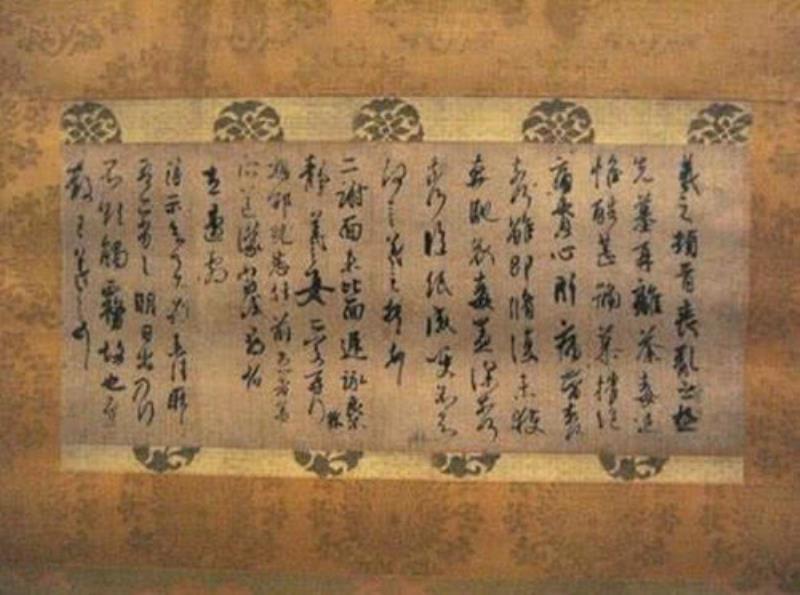 羲之頓首喪亂之極
先墓再離荼毒追
惟酷甚號慕摧絕
痛貫心肝痛當奈何
奈何雖即脩復未獲
奔馳哀毒益深奈何
奈何臨紙感哽不知
何言羲之頓首頓首
二謝面未比面遲詠良
不靜羲之女愛再拜
想邵兒悉佳前患者善
所送議當試尋省
左邊劇
得示知足下猶未佳耿耿
吾亦劣劣明日出乃行
不欲觸霧故也遲
散王羲之頓首